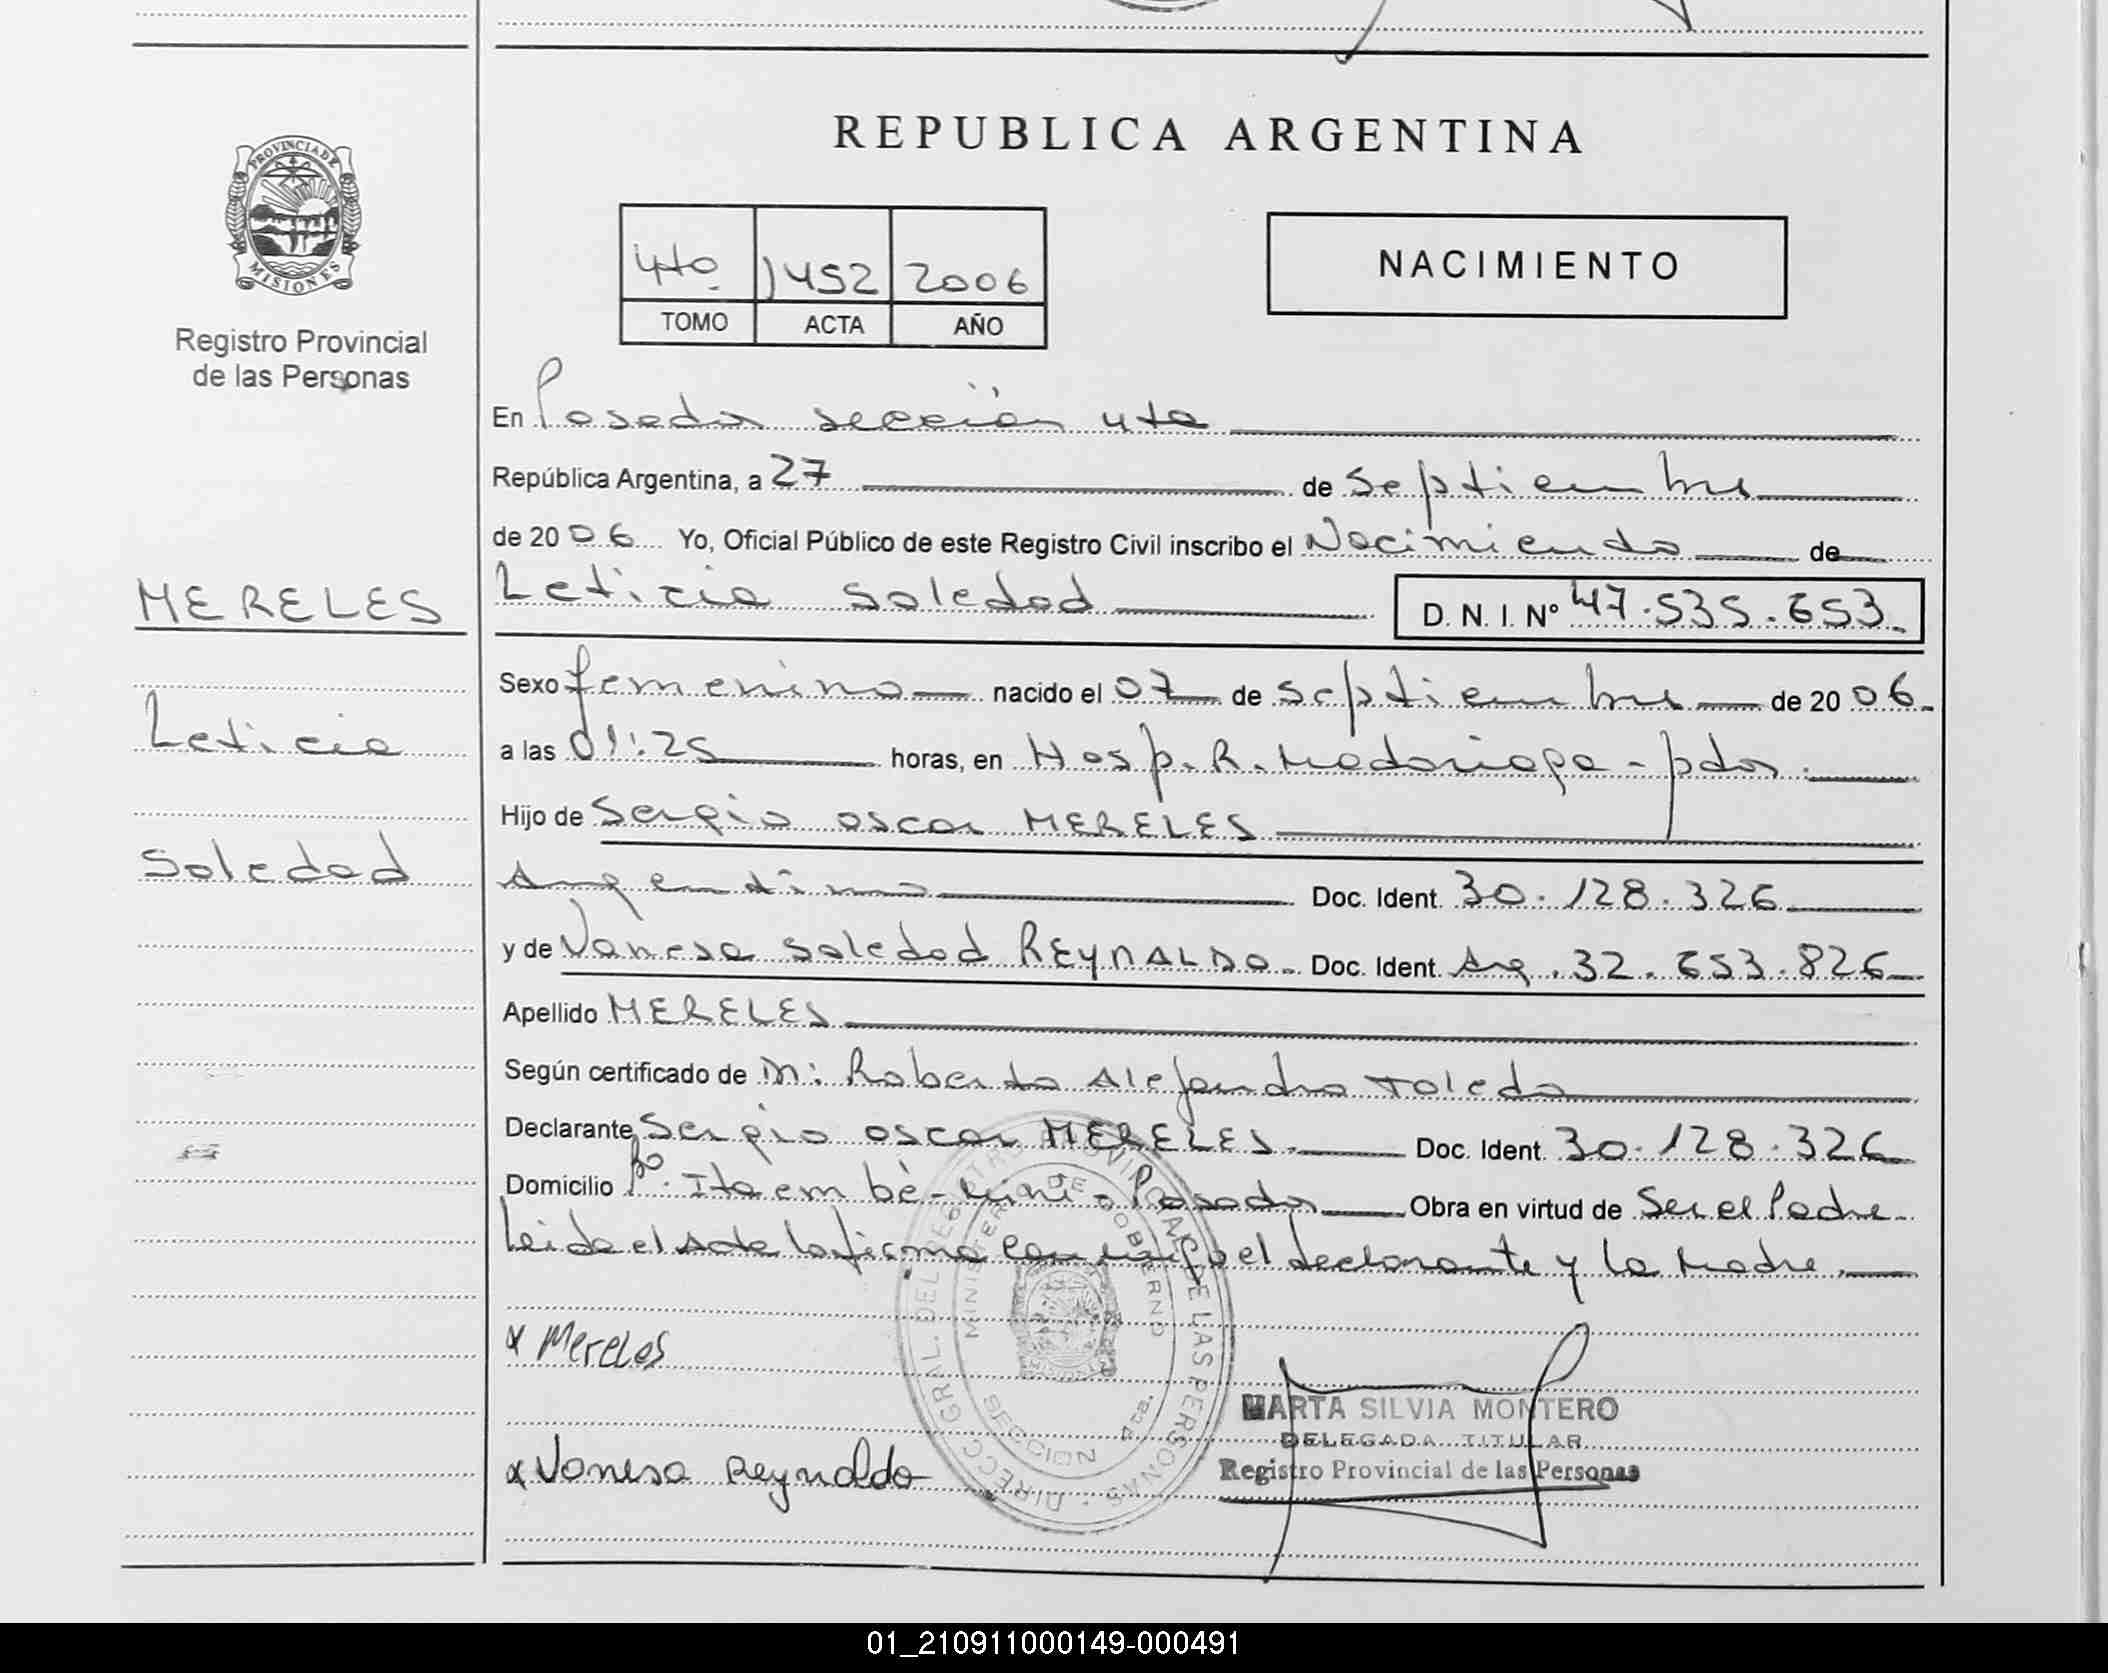 REPUBLICA ARGENTINA
PROVINCIA DE
MISIONES
Registro Provincial
de las Personas
4to. 1452 2006
TOMO ACTA AÑO
NACIMIENTO
En Posadas sección 4ta
República Argentina, a 27 de Septiembre
de 2006 Yo, Oficial Público de este Registro Civil inscribo el Nacimiento de
MERELES
Leticia Soledad D. N. I. Nº 47.535.653.
Sexo femenino nacido el 07 de Septiembre de 2006.
Leticia
a las 01:25 horas, en Hosp. R. Madariaga - pdas.
Hijo de Sergio Oscar MERELES
Soledad
Argentino Doc. Ident. 30.128.326
y de Vanesa Soledad REYNALDO. Doc. Ident. Arg. 32.653.826
Apellido MERELES
Según certificado de M: Roberto Alejandro Toledo
Declarante Sergio Oscar MERELES. Doc. Ident. 30.128.326
Domicilio Bº. Itaembé-Miní-Posadas Obra en virtud de Ser el Padre.
Leida el Acta la firma conmigo el declarante y la Madre.
x Mereles
x Vanesa Reynaldo
DIRECC. GRAL. DEL REGISTRO PROVINCIAL DE LAS PERSONAS
MINISTERIO DE GOBIERNO
SECCION 4ta.
MARTA SILVIA MONTERO
DELEGADA TITULAR
Registro Provincial de las Personas
01_210911000149-000491